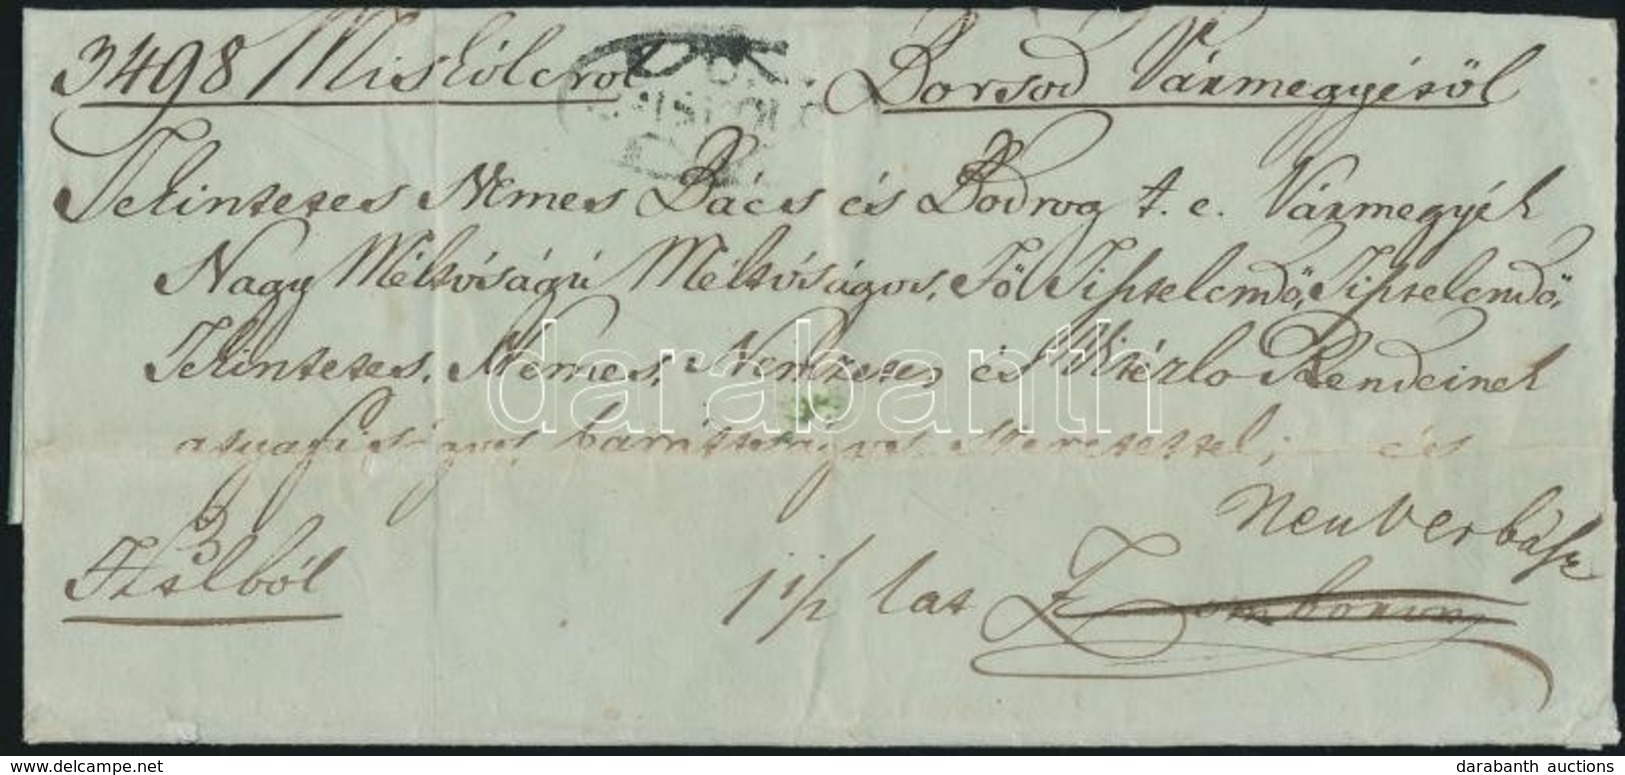 3498 Miskólcrol Borsod Vármegyéröl
Tekintetes Nemes Bács és Bodrog t. e. Vármegyék
Nagy Méltóságú Méltóságos, Fö Tisztelendö, Tisztelendö,
Tekintetes, Nemes, Nemzetes és Vitézlo Rendeinek
atyafiságos barátságos szeretettel; és
Neu Verbász
Hi-ból
Zomborban
darabanth
www.delcampe.net
darabanth auctions